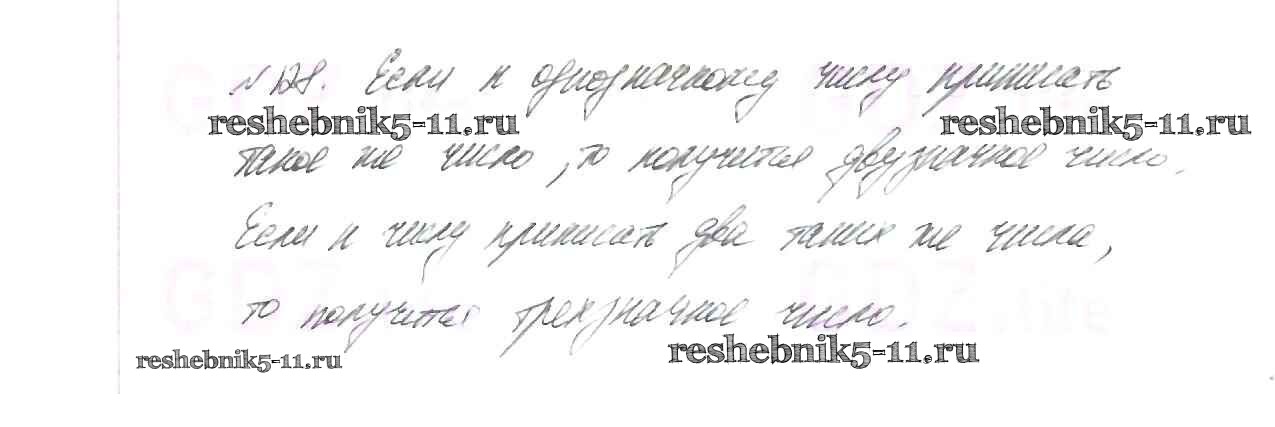 №128. Если к однозначному числу приписать
reshebnik5-11.ru reshebnik5-11.ru
такое же число, то получится двузначное число.
Если к числу приписать два таких же числа,
то получится трехзначное число.
reshebnik5-11.ru reshebnik5-11.ru